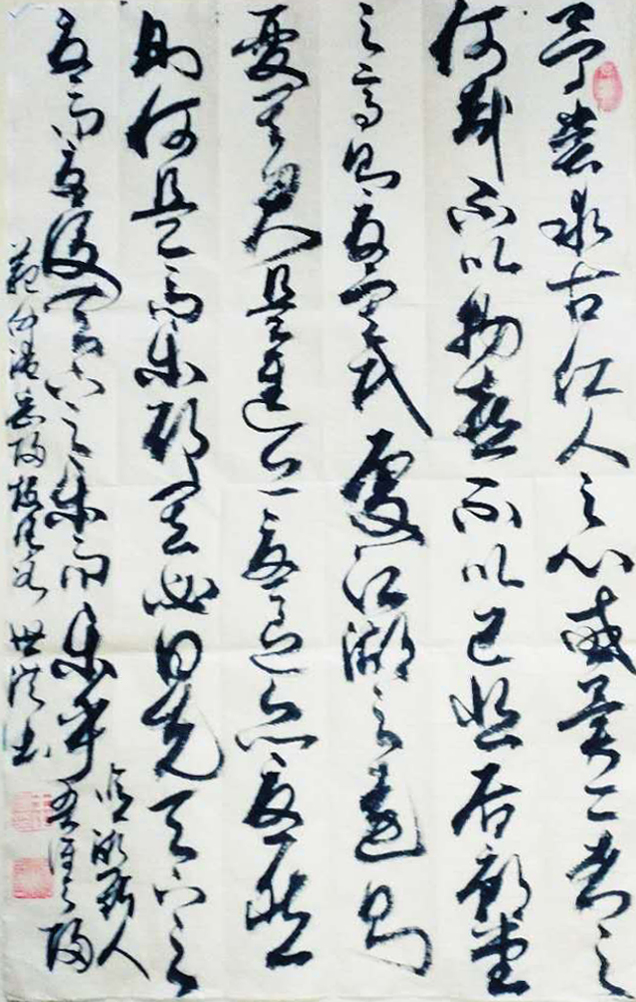 予嘗求古仁人之心或異二者之
何哉不以物喜不以己悲居廟堂
之高則憂其民處江湖之遠則
憂其君是進亦憂退亦憂然
則何是而樂耶其必曰先天下之
憂而憂後天下之樂而樂乎
噫微斯人
吾誰與歸
范仲淹岳陽樓記 世 書